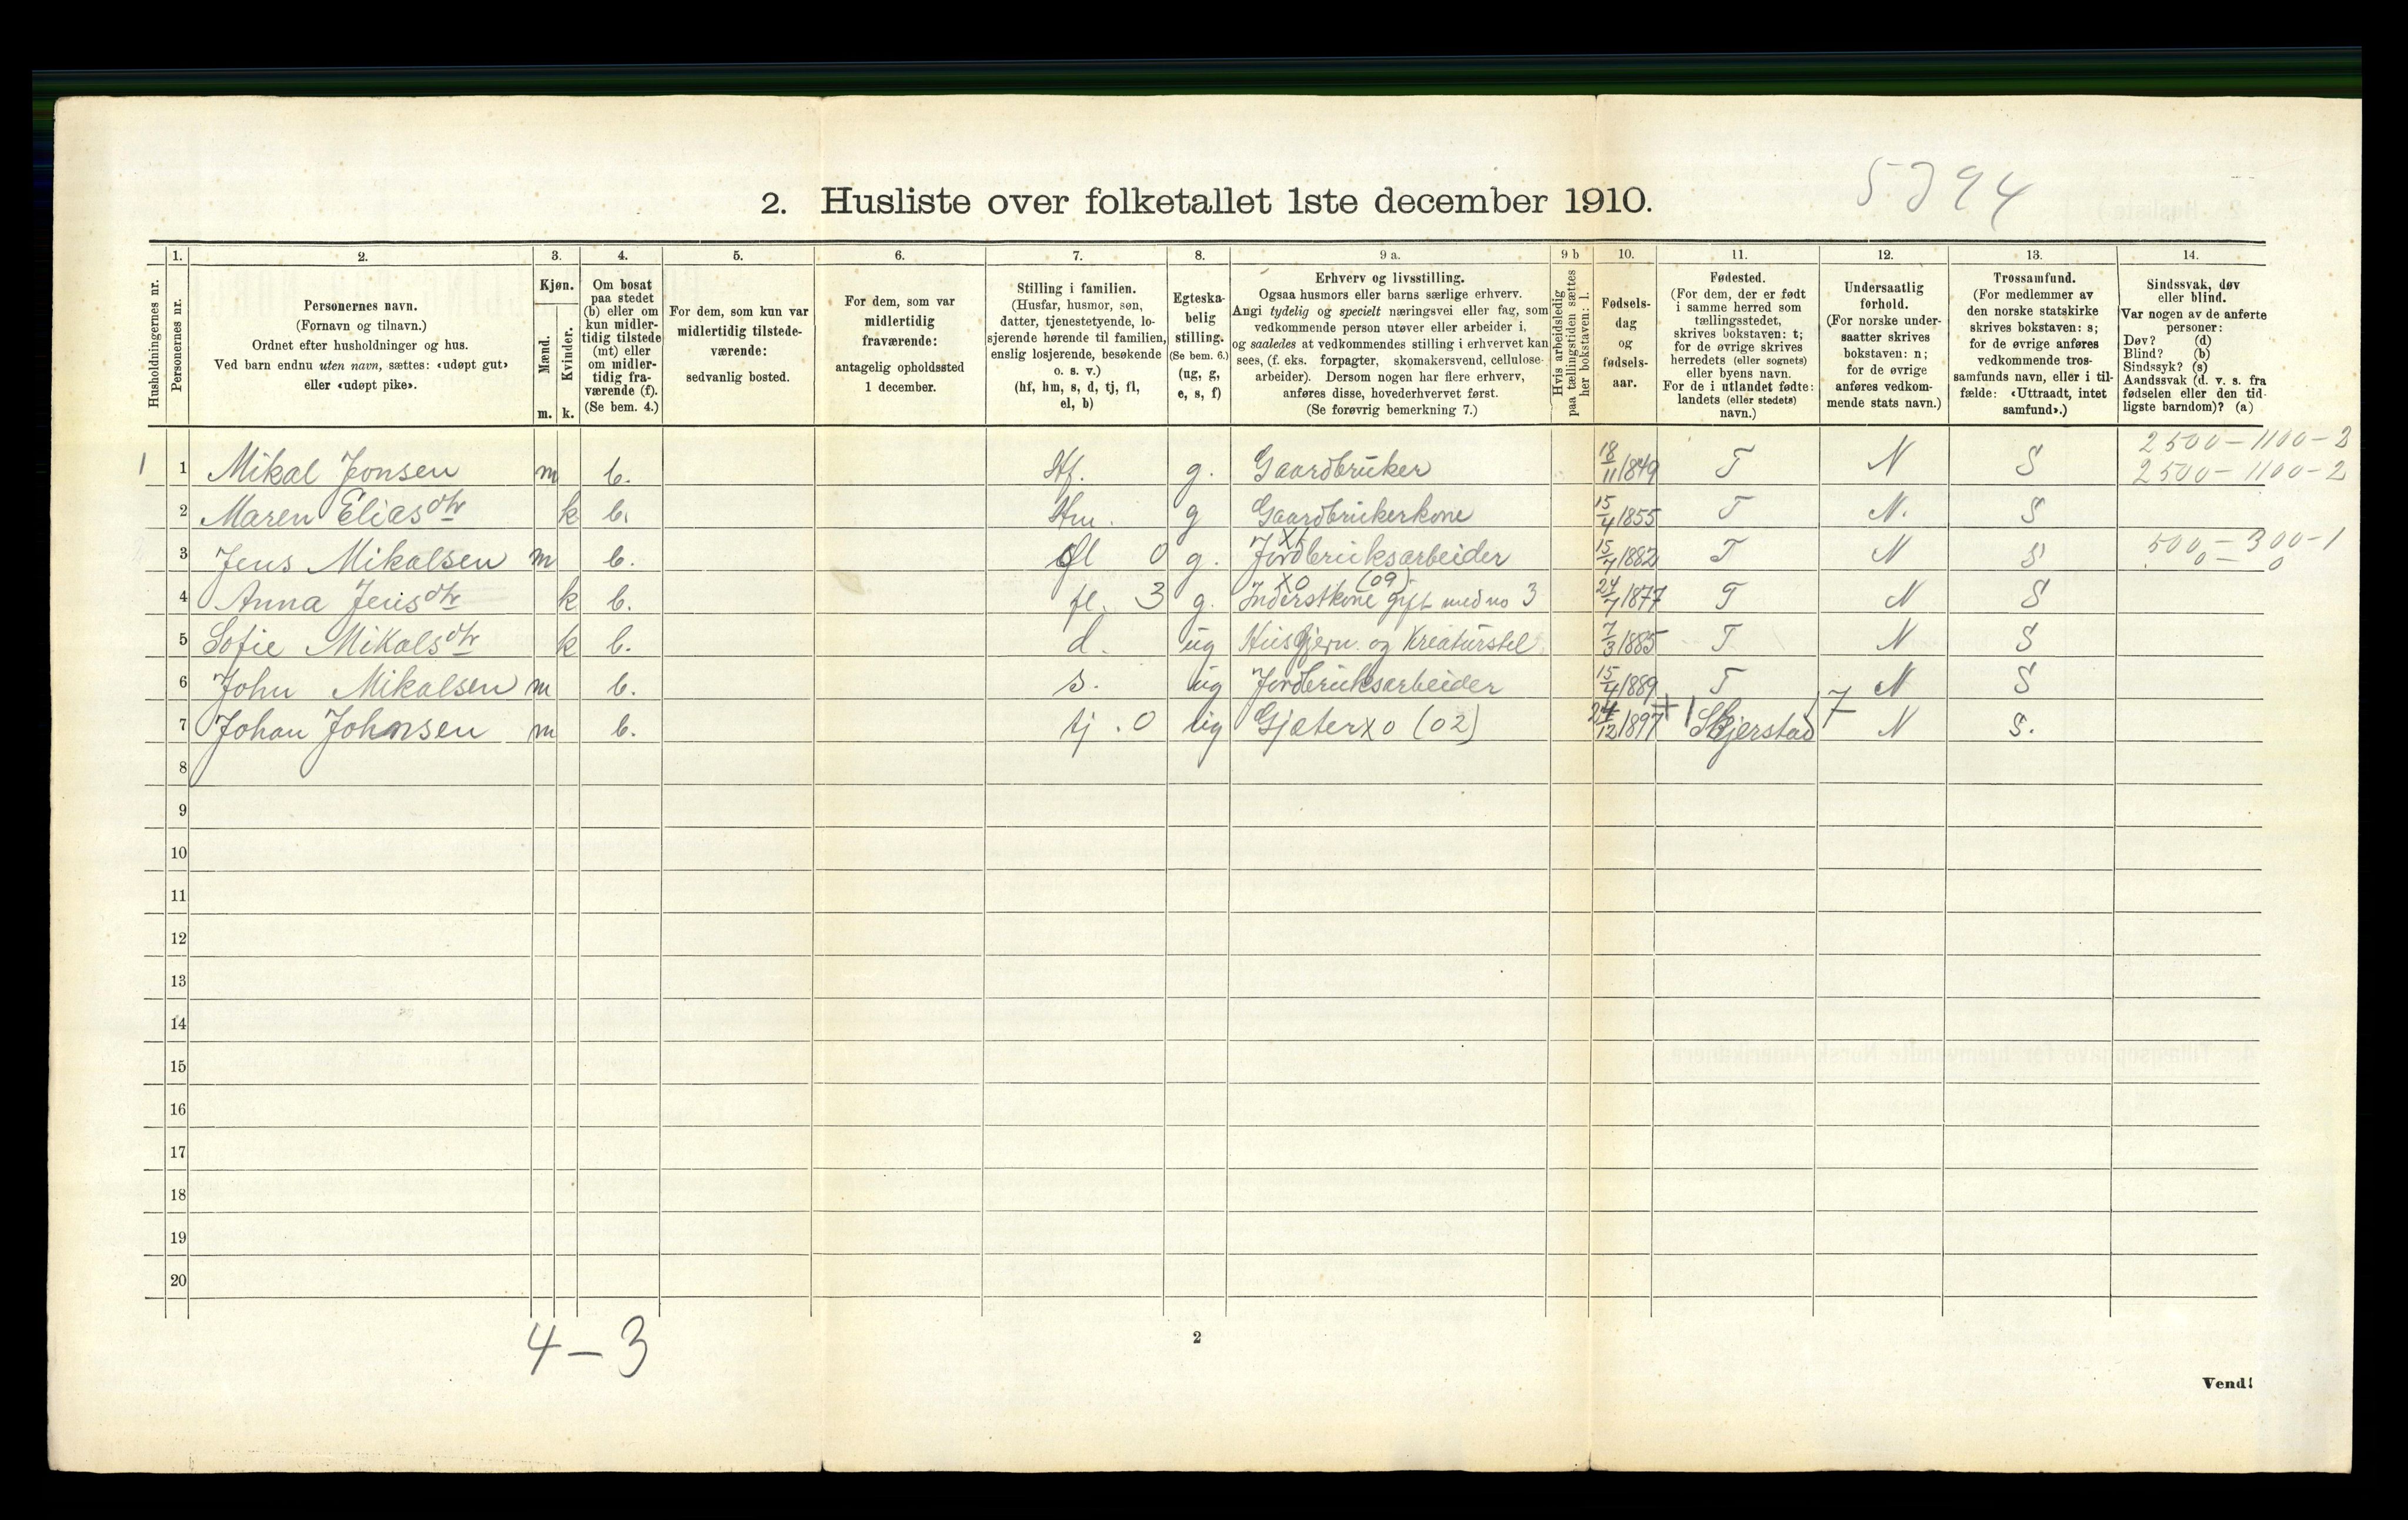 5394
2. Husliste over folketallet 1ste december 1910.
1. 2. 3. 4. 5. 6. 7. 8. 9 a. 9 b 10. 11. 12. 13. 14.
Husholdningernes nr.
Personernes nr.
Personernes navn.
(Fornavn og tilnavn.)
Ordnet efter husholdninger og hus.
Ved barn endnu uten navn, sættes: «udøpt gut»
eller «udøpt pike».
Kjøn.
Mænd.
Kvinder.
m. k.
Om bosat
paa stedet
(b) eller om
kun midler-
tidig tilstede
(mt) eller
om midler-
tidig fra-
værende (f).
(Se bem. 4.)
For dem, som kun var
midlertidig tilstede-
værende:
sedvanlig bosted.
For dem, som var
midlertidig
fraværende:
antagelig opholdssted
1 december.
Stilling i familien.
(Husfar, husmor, søn,
datter, tjenestetyende, lo-
sjerende hørende til familien,
enslig losjerende, besøkende
o. s. v.)
(hf, hm, s, d, tj, fl,
el, b)
Egteska-
belig
stilling.
(Se bem. 6.)
(ug, g,
e, s, f)
Erhverv og livsstilling.
Ogsaa husmors eller barns særlige erhverv.
Angi tydelig og specielt næringsvei eller fag, som
vedkommende person utøver eller arbeider i,
og saaledes at vedkommendes stilling i erhvervet kan
sees, (f. eks. forpagter, skomakersvend, cellulose-
arbeider). Dersom nogen har flere erhverv,
anføres disse, hovederhvervet først.
(Se forøvrig bemerkning 7.)
Hvis arbeidsledig
paa tællingstiden sættes
her bokstaven: l.
Fødsels-
dag
og
fødsels-
aar.
Fødested.
(For dem, der er født
i samme herred som
tællingsstedet,
skrives bokstaven: t;
for de øvrige skrives
herredets (eller sognets)
eller byens navn.
For de i utlandet fødte:
landets (eller stedets)
navn.)
Undersaatlig
forhold.
(For norske under-
saatter skrives
bokstaven: n;
for de øvrige
anføres vedkom-
mende stats navn.)
Trossamfund.
(For medlemmer av
den norske statskirke
skrives bokstaven: s;
for de øvrige anføres
vedkommende tros-
samfunds navn, eller i til-
fælde: «Uttraadt, intet
samfund».)
Sindssvak, døv
eller blind.
Var nogen av de anførte
personer:
Døv? (d)
Blind? (b)
Sindssyk? (s)
Aandssvak (d. v. s. fra
fødselen eller den tid-
ligste barndom)? (a)
2500-1100-2
1 1 Mikal Jonsen m b. Hf. g. Gaardbruker 18/11 1849 T N S 2500-1100-2
2 Maren Eliasdtr k b. Hm. g Gaardbrukerkone 15/4 1855 T N. S
3 Jens Mikalsen m b. fl 0 g. Jordbruksarbeider 15/7 1882 T N S 500-300-1
X1 0 - 0
X0 (09)
4 Anna Jensdtr k b. fl. 3 g. Inderstkone gift med no 3 24/7 1877 T N S
5 Sofie Mikalsdtr k b. d. ug Husgjern. og Kreaturstel 7/3 1885 T N S
6 John Mikalsen m b. s. ug Jordbruksarbeider 15/4 1889 T N S
7 Johan Johnsen m b. tj. 0 ug Gjæter x0 (02) 24/12 1897 + Skjerstad 7 N S.
8
9
10
11
12
13
14
15
16
17
18
19
20
4-3
2
Vend!